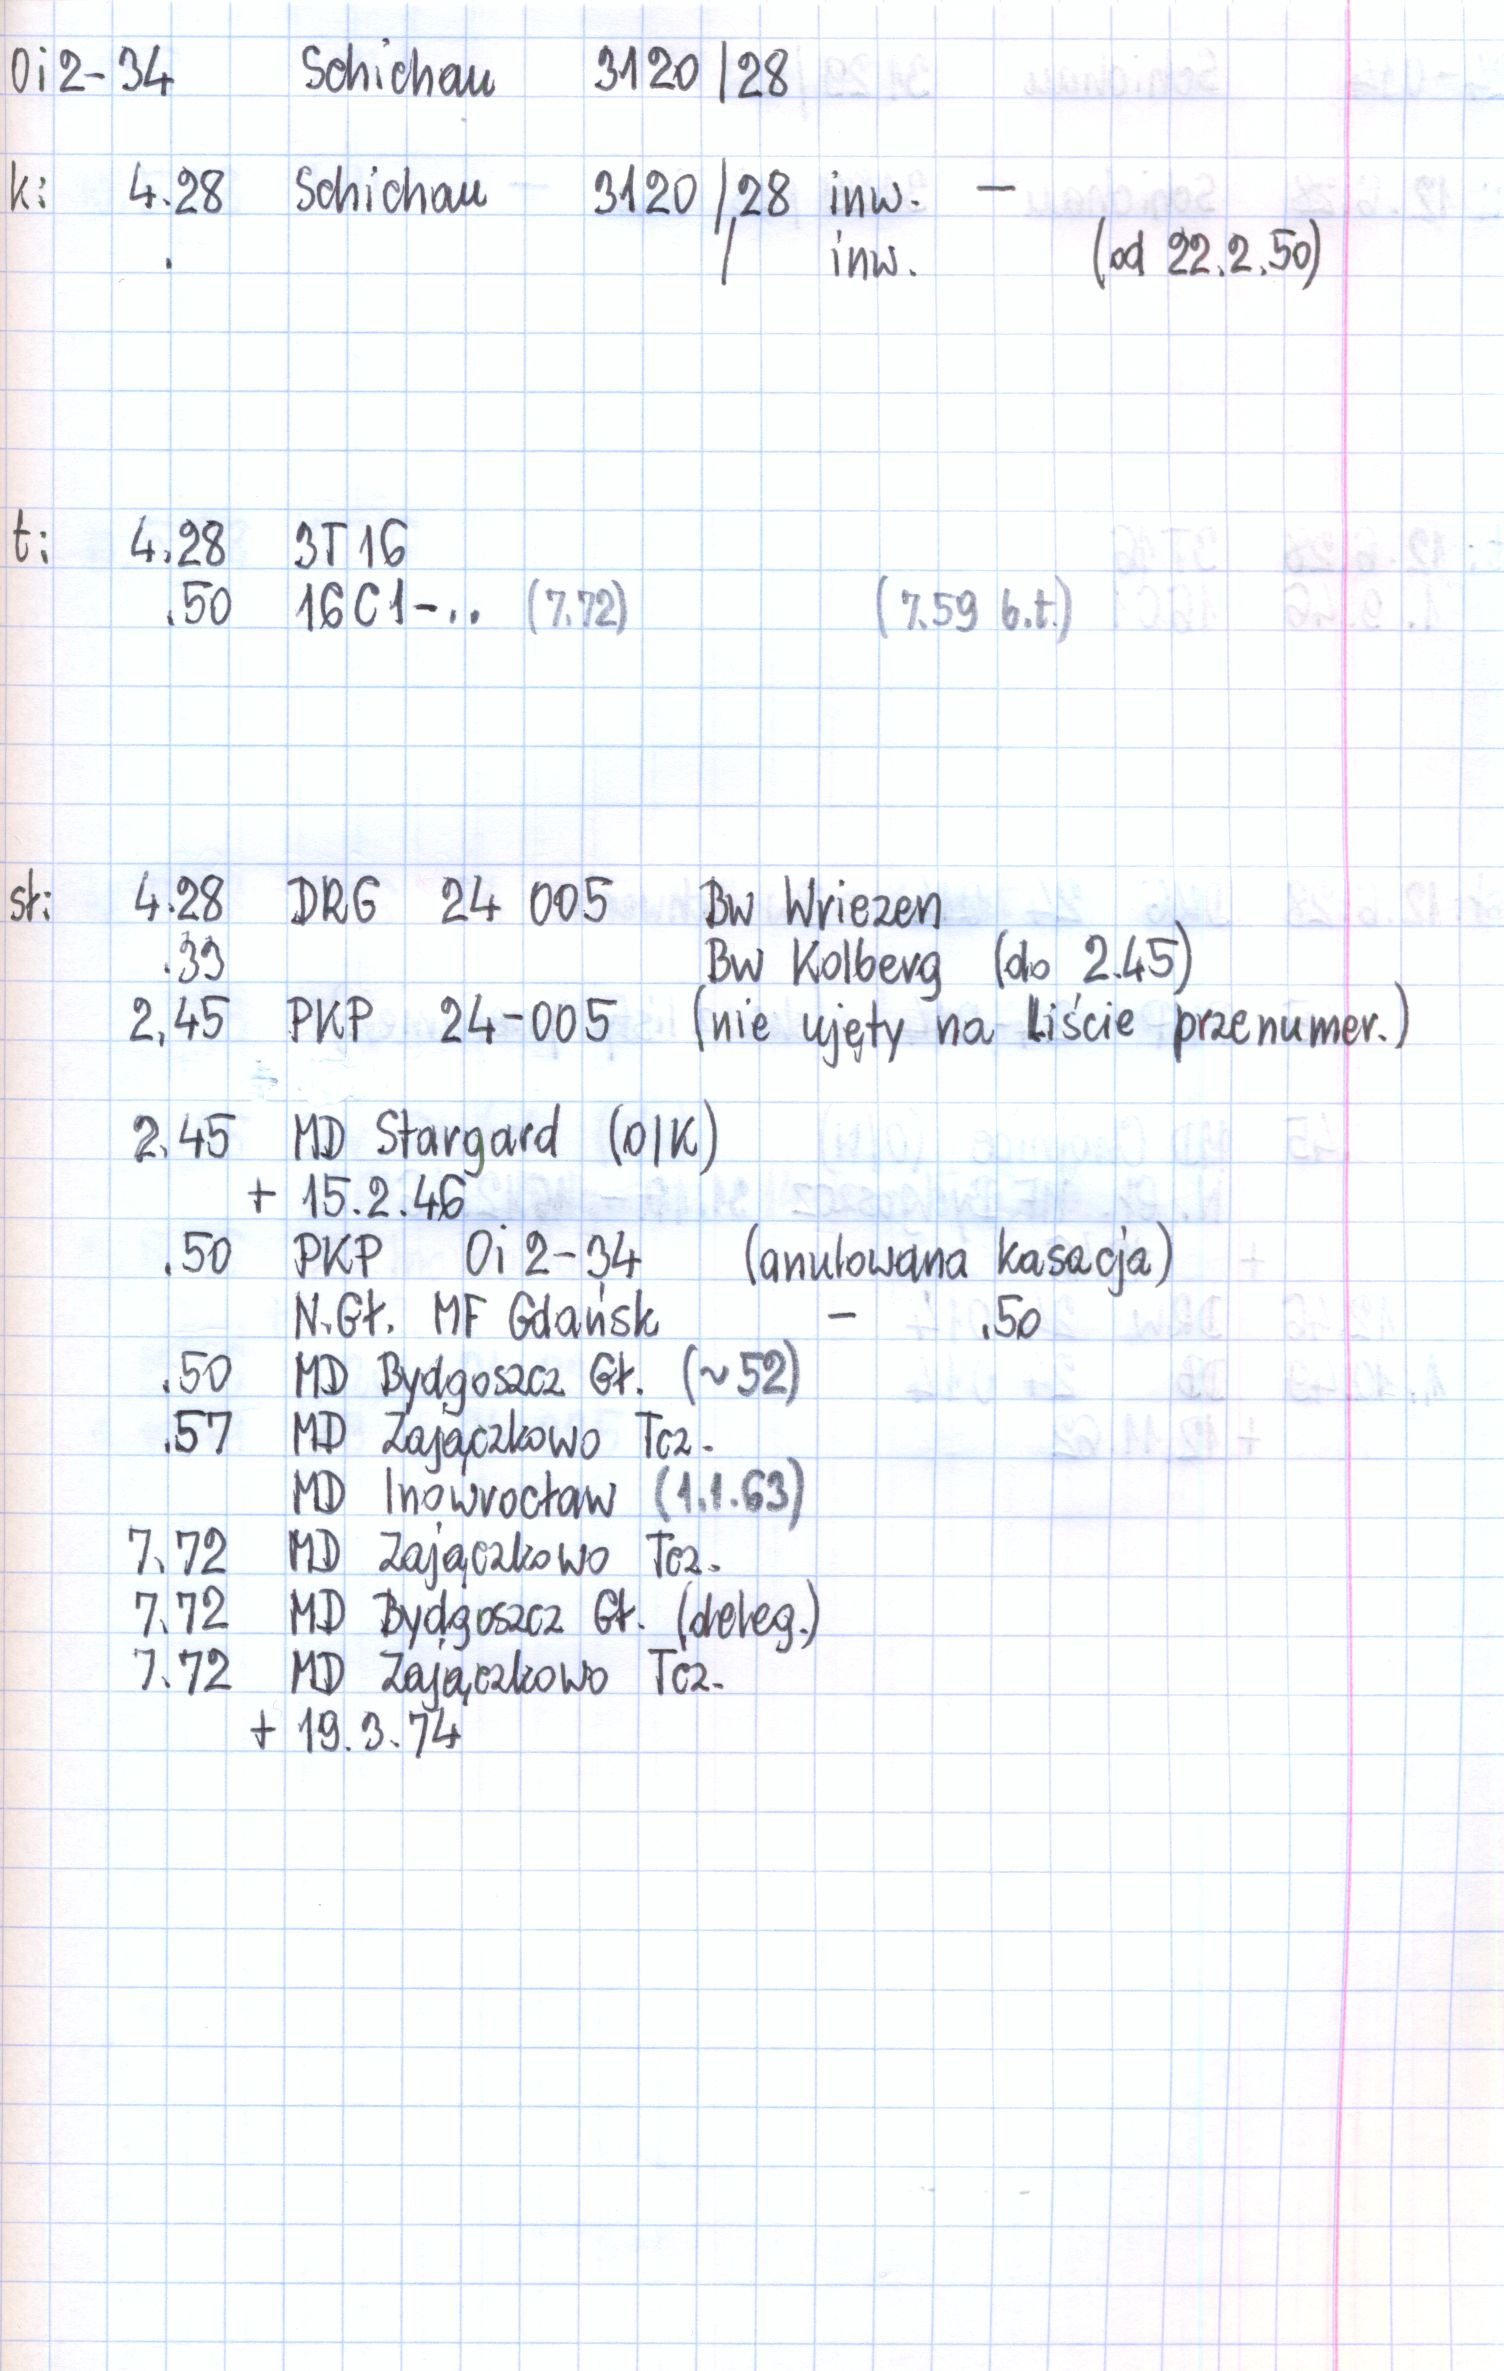 Oi2-34 Schichau 3120/28
k: 4.28 Schichau 3120/28 inw. -
. / inw. (od 22.2.50)
t: 4.28 3T16
.50 16C1-.. (7.72) (7.59 b.t.)
st: 4.28 DRG 24 005 Bw Wriezen
.33 Bw Kolberg (do 2.45)
2.45 PKP 24-005 (nie ujęty na Liście przenumer.)
2.45 MD Stargard (O/K)
+ 15.2.46
.50 PKP Oi2-34 (anulowana kasacja)
N.Gł. MF Gdańsk - .50
.50 MD Bydgoszcz Gł. (~52)
.57 MD Zajączkowo Tcz.
MD Inowrocław (1.1.63)
7.72 MD Zajączkowo Tcz.
7.72 MD Bydgoszcz Gł. (deleg.)
7.72 MD Zajączkowo Tcz.
+ 19.3.74